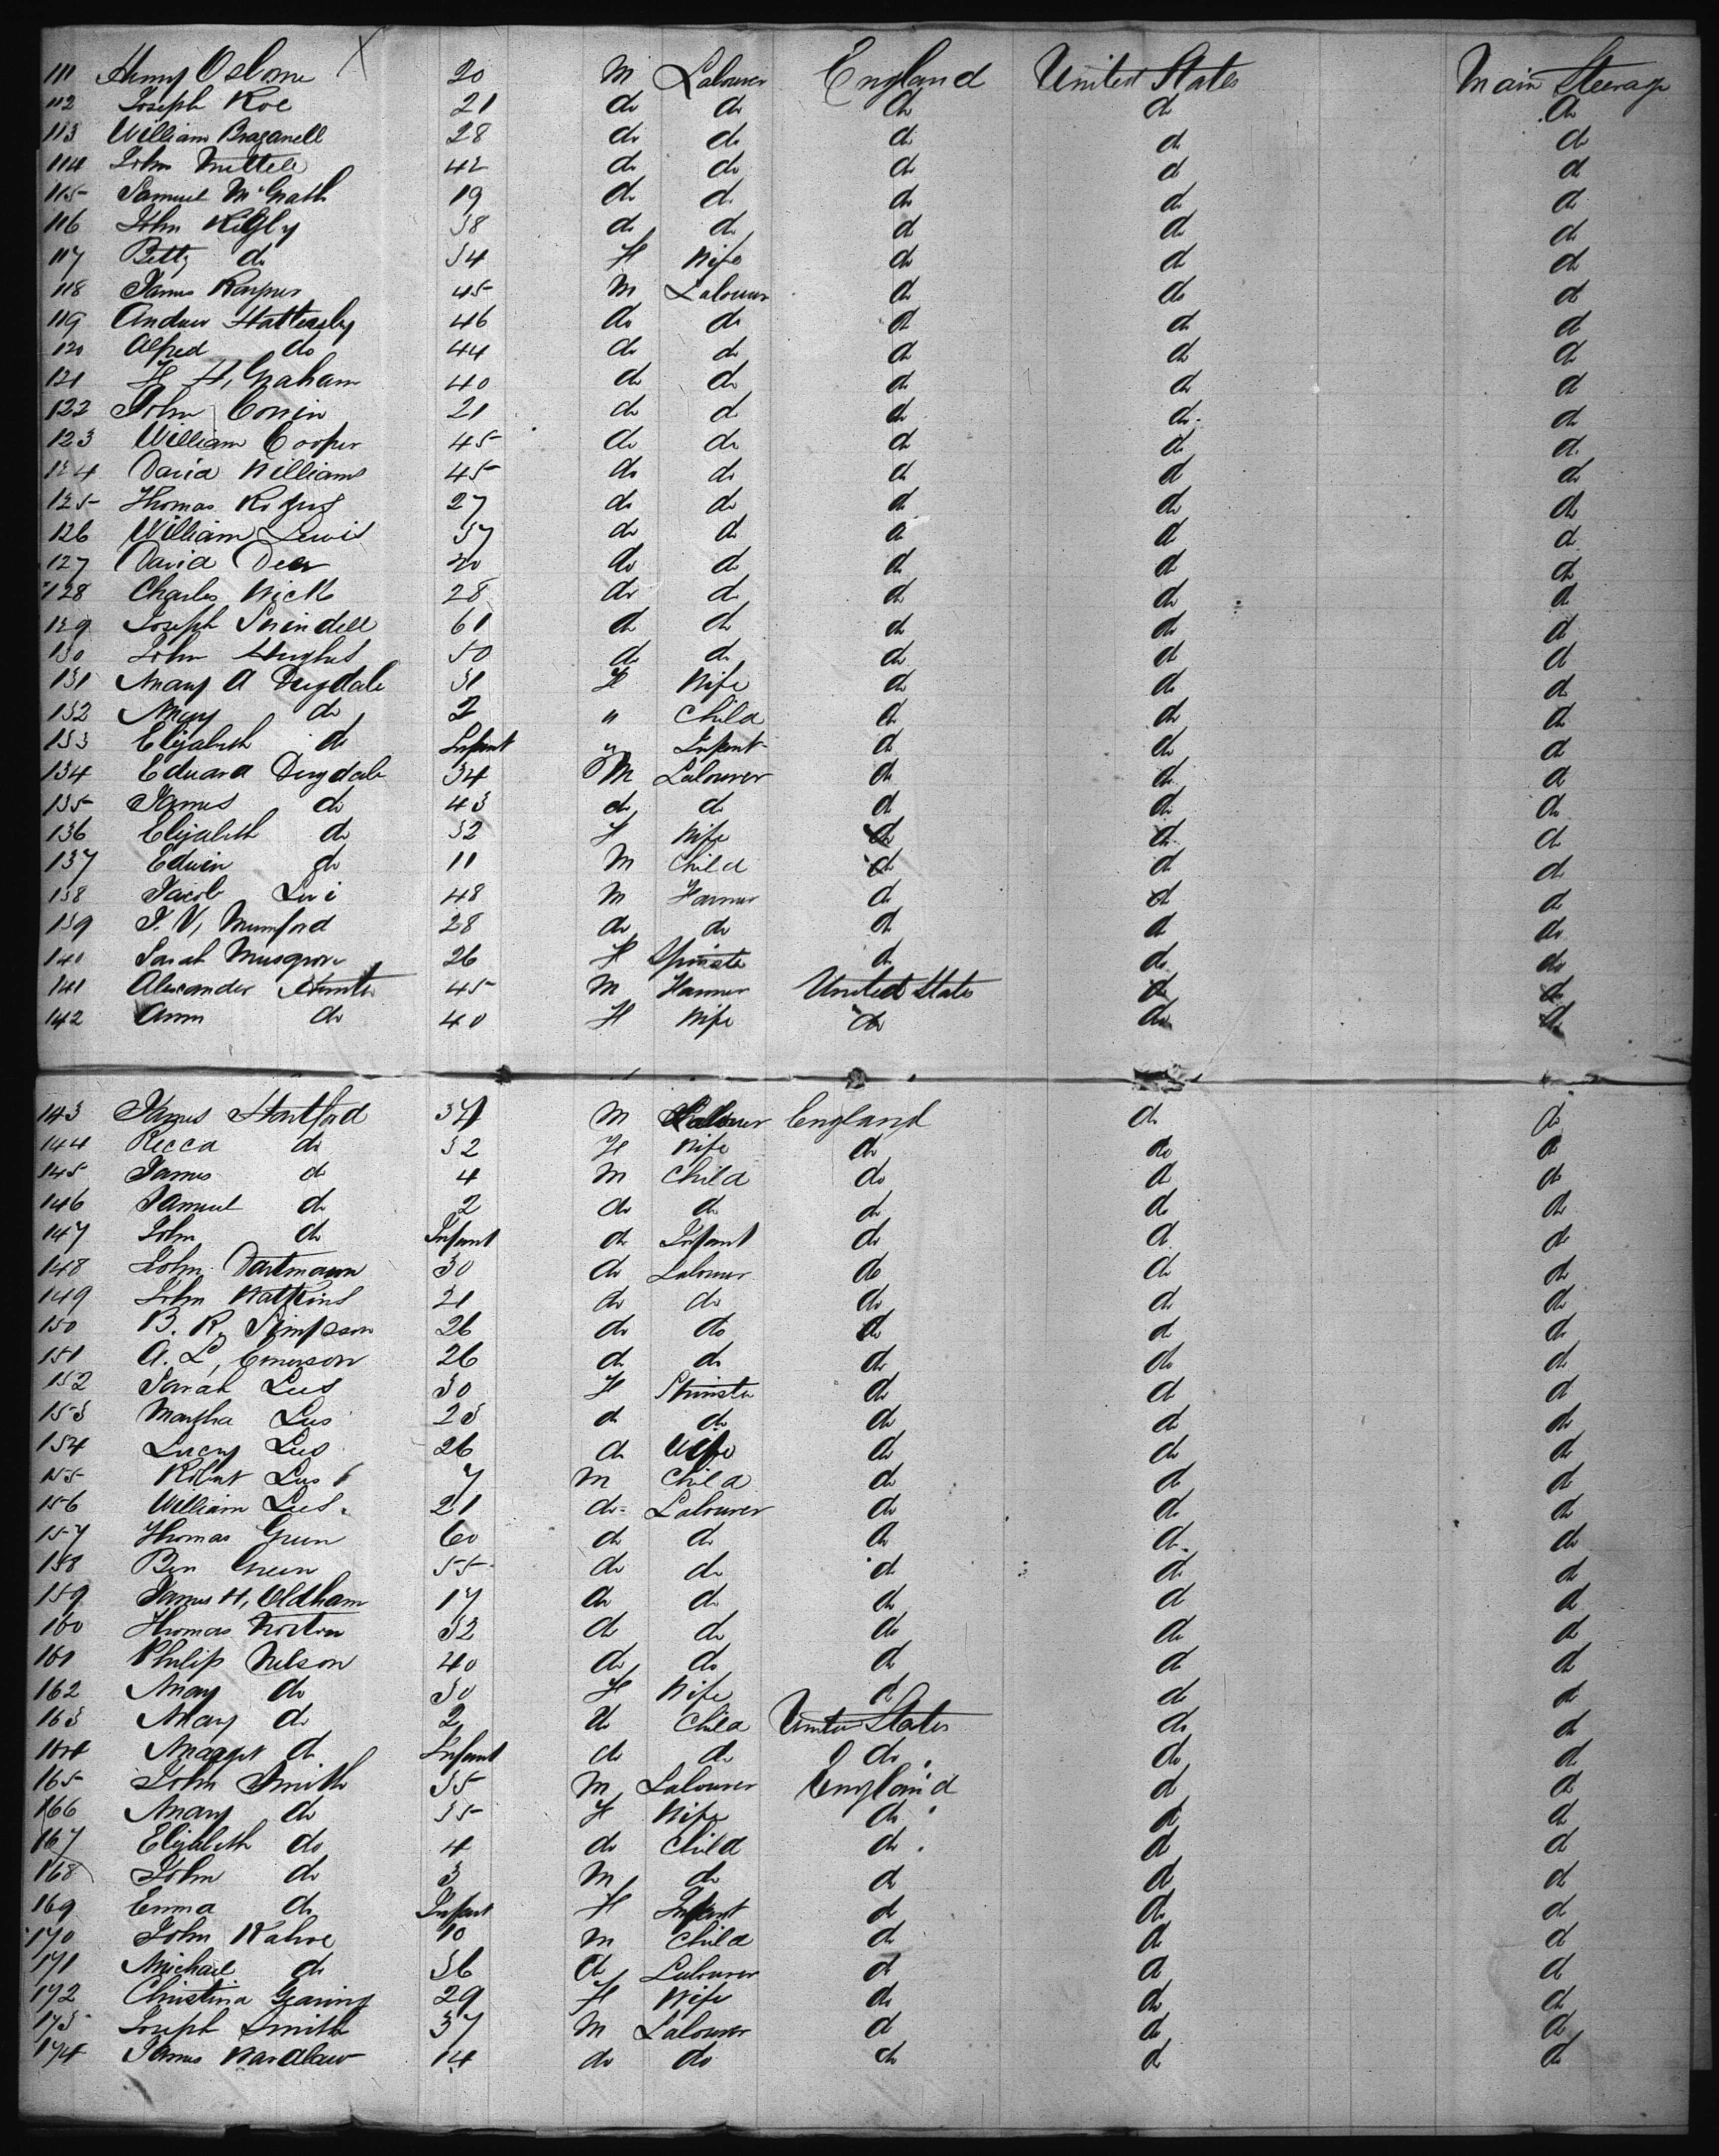 111 Henry Osborne X 20 M Labourer England United States Main Steerage
112 Joseph Roe 21 do do do do do
113 William Brazanell 28 do do do do do
114 John 42 do do do do do
115 Samuel McGrath 19 do do do do do
116 John Rigby 38 do do do do do
117 Betty do 34 F Wife do do do
118 James 45 M Labourer do do do
119 Andrew Hattersley 46 do do do do do
120 Alfred do 44 do do do do do
121 H. Graham 40 do do do do do
122 John 21 do do do do do
123 William Cooper 45 do do do do do
124 David Williams 45 do do do do do
125 Thomas Rogers 27 do do do do do
126 William Lewis 37 do do do do do
127 David 20 do do do do do
128 Charles 28 do do do do do
129 Joseph Swindell 61 do do do do do
130 John Hughes 50 do do do do do
131 Mary A Dugdale 31 F Wife do do do
132 Mary do 2 " Child do do do
133 Elizabeth do Infant " Infant do do do
134 Edward Dugdale 34 M Labourer do do do
135 James do 43 do do do do do
136 Elizabeth do 32 F Wife do do do
137 Edwin do 11 M Child do do do
138 Jacob Levi 48 M Farmer do do do
139 J. V, Mumford 28 do do do do do
140 Sarah Musgrove 26 F Spinster do do do
141 Alexander Hunter 45 M Farmer United States do do
142 Ann do 40 F Wife do do do
143 James Hartford 34 M Labourer England do do
144 Recca do 32 F Wife do do do
145 James do 4 M Child do do do
146 Samuel do 2 do do do do do
147 John do Infant do Infant do do do
148 John 30 do Labourer do do do
149 John Watkins 21 do do do do do
150 B. R, Simpson 26 do do do do do
151 A. L, Emerson 26 do do do do do
152 Sarah Lees 30 F Spinster do do do
153 Martha Lees 23 do do do do do
154 Lucy Lees 26 do Wife do do do
155 Robert Lees 7 M Child do do do
156 William Lees 21 do Labourer do do do
157 Thomas Green 60 do do do do do
158 Ben Green 55 do do do do do
159 James H, Oldham 17 do do do do do
160 Thomas Norton 32 do do do do do
161 Philip Nelson 40 do do do do do
162 Mary do 30 F Wife do do do
163 Mary do 2 do Child United States do do
164 Margret do Infant do do do do do
165 John Smith 35 M Labourer England do do
166 Mary do 35 F Wife do do do
167 Elizabeth do 4 do Child do do do
168 John do 3 M do do do do
169 Emma do Infant F Infant do do do
170 John 10 M Child do do do
171 Michael do 36 do Labourer do do do
172 Christina Gearing 29 F Wife do do do
173 Joseph Smith 37 M Labourer do do do
174 James Wardlaw 14 do do do do do